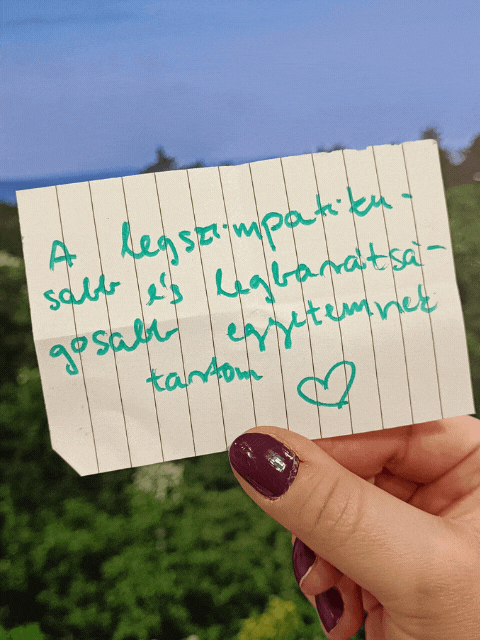 A legszimpatiku-
sabb és legbarátsá-
gosabb egyetemnek
tartom ♡